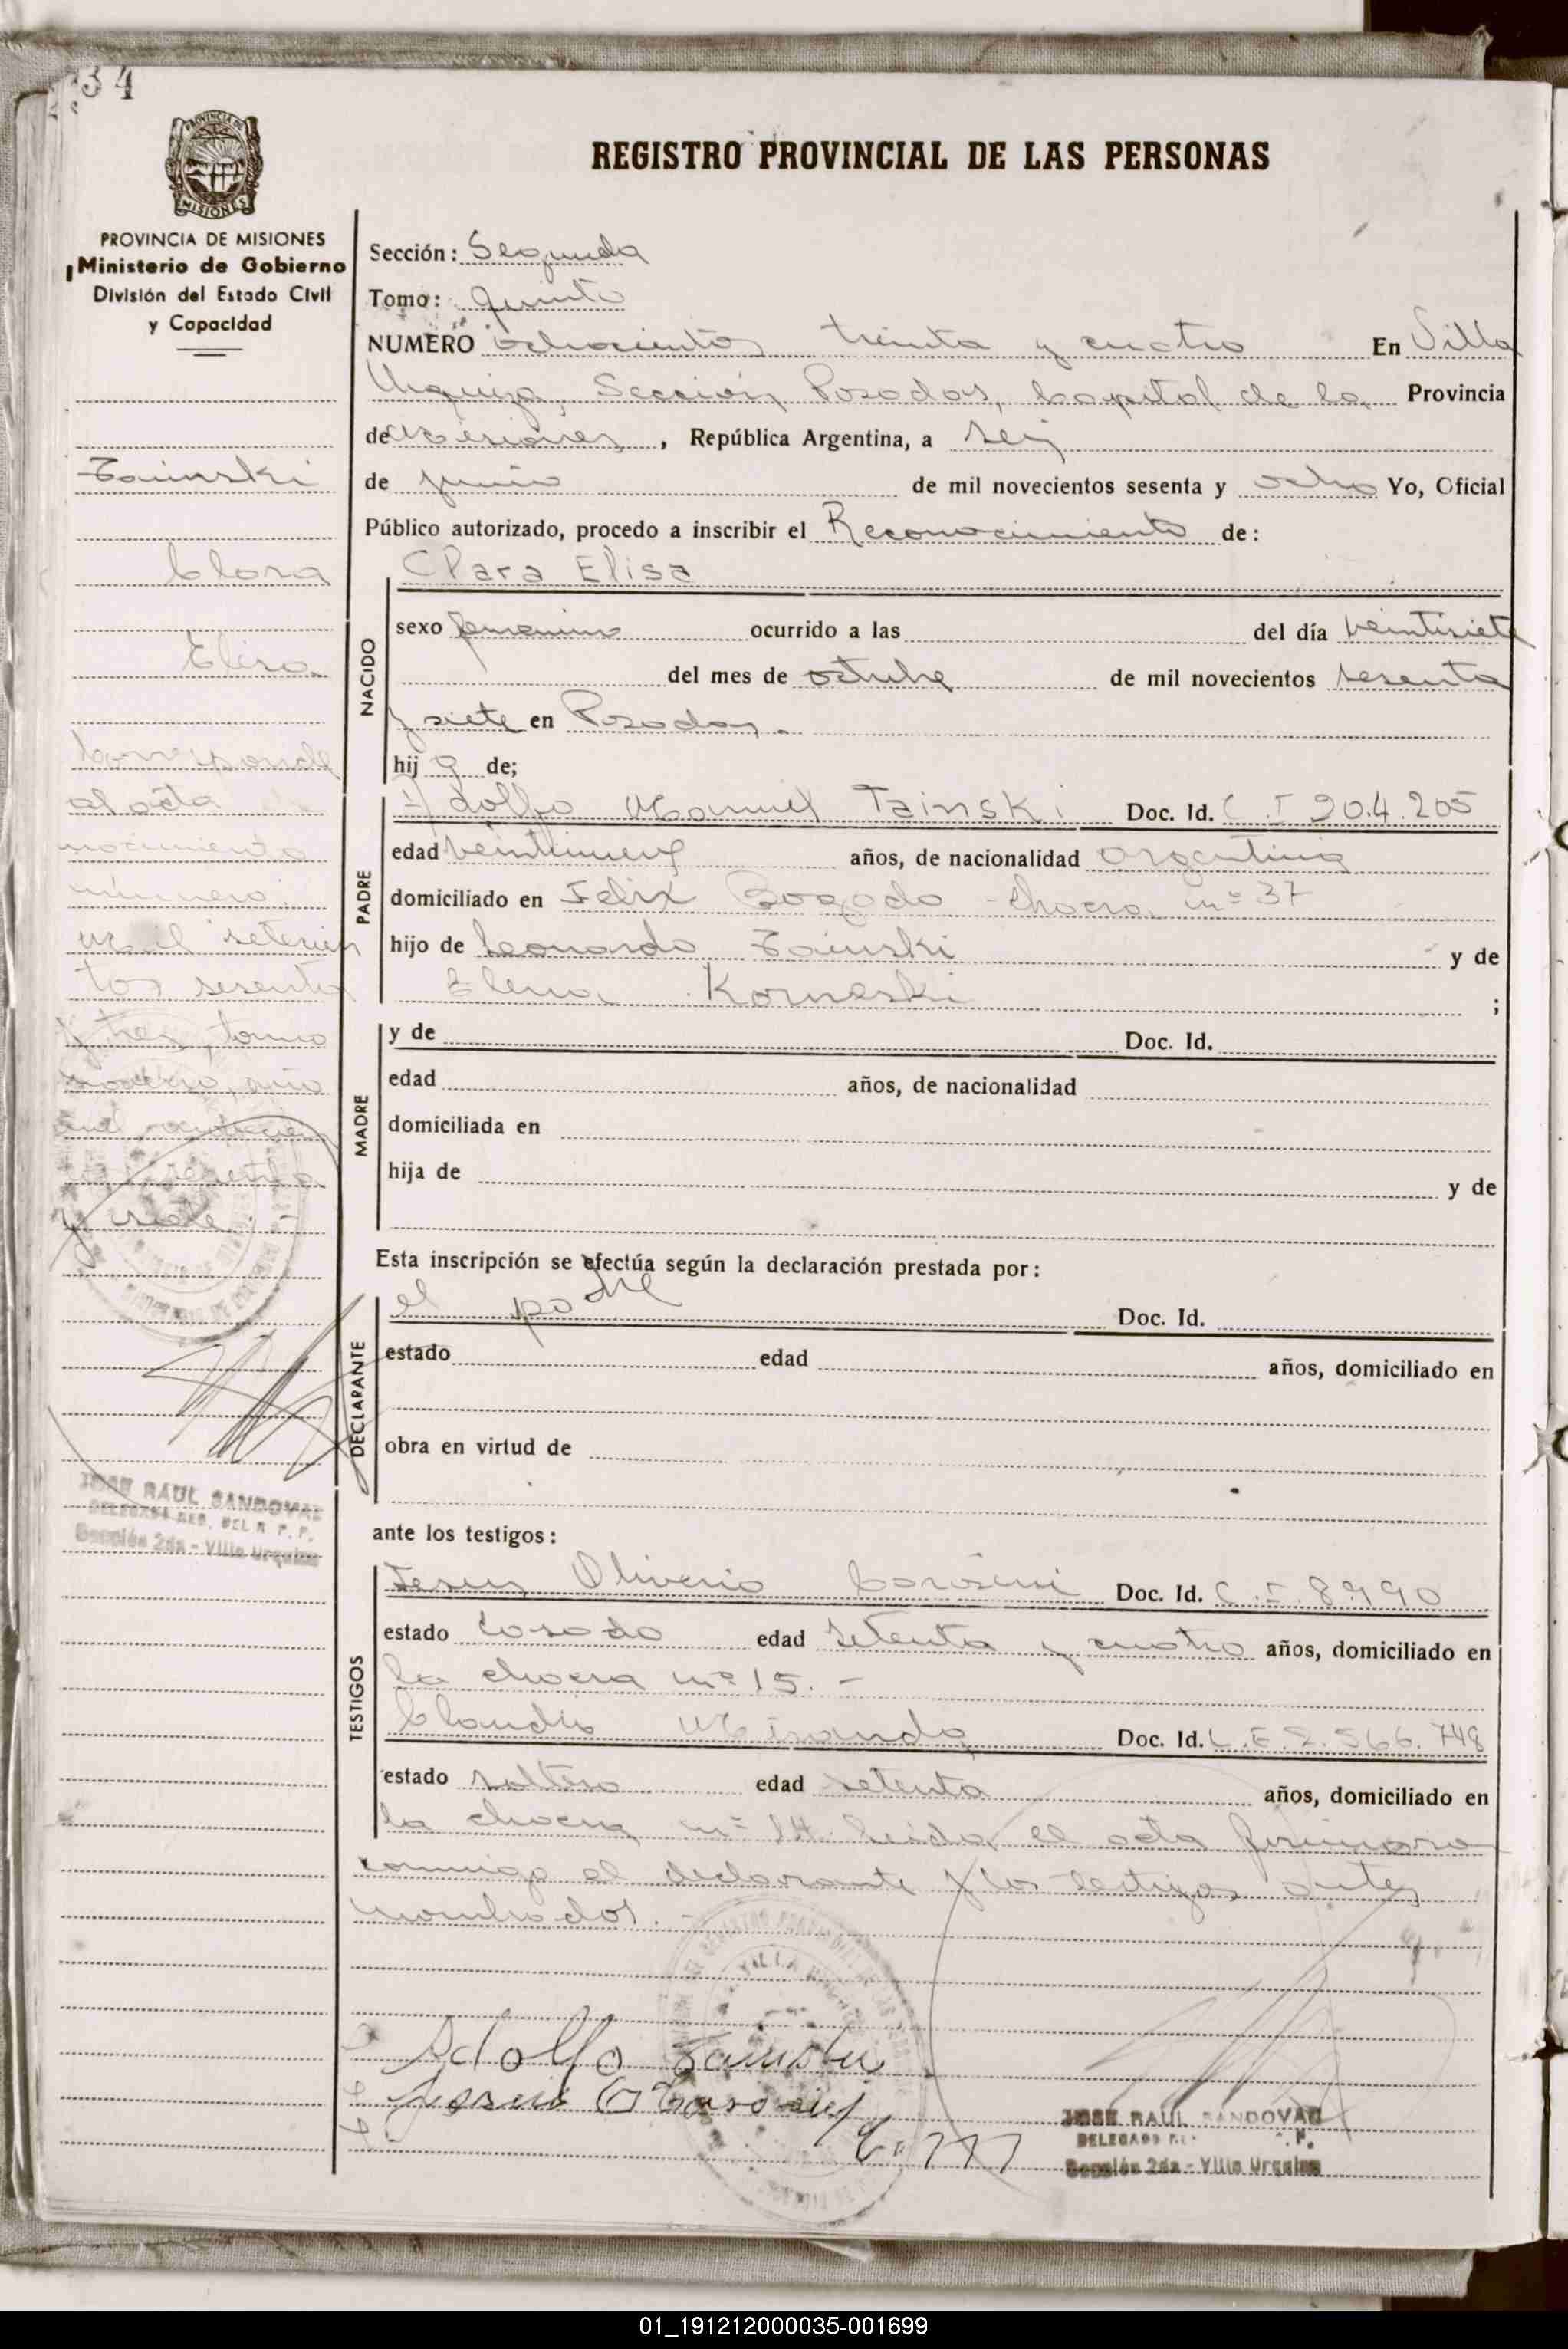 34
PROVINCIA DE
MISIONES
PROVINCIA DE MISIONES
Ministerio de Gobierno
División del Estado Civil
y Capacidad
Tainski
Clara
Elisa
Corresponde
al acta
nacimiento
número:
Mil setecien
tos sesenta
y tres, tomo
año
mil
sesenta
y siete.-
JOSE RAUL SANDOVAL
DELEGADO REG. DEL R. P. P.
Sección 2da - Villa Urquiza
REGISTRO PROVINCIAL DE LAS PERSONAS
Sección: Segunda
Tomo: quinto
NUMERO ochocientos treinta y cuatro En Villa
Urquiza, Sección Posadas, Capital de la Provincia
de Misiones, República Argentina, a seis
de junio de mil novecientos sesenta y ocho Yo, Oficial
Público autorizado, procedo a inscribir el Reconocimiento de:
Clara Elisa
NACIDO
sexo femenino ocurrido a las del día veintisiete
del mes de octubre de mil novecientos sesenta
y siete en Posadas.
hij a de;
PADRE
Adolfo Manuel Tainski Doc. Id. C.I 204.205
edad veintinueve años, de nacionalidad argentina
domiciliado en Felix Bogado - chacra nº 37
hijo de Leonardo Tainski y de
Elena Korneski ;
MADRE
y de Doc. Id.
edad años, de nacionalidad
domiciliada en
hija de y de
Esta inscripción se efectúa según la declaración prestada por:
DECLARANTE
el padre Doc. Id.
estado edad años, domiciliado en
obra en virtud de
ante los testigos:
TESTIGOS
Jesus Oliverio Doc. Id. C.I. 8.990
estado Casado edad setenta y cuatro años, domiciliado en
la chacra nº 15.-
Claudio Miranda Doc. Id. L.E. 2.566.748
estado soltero edad setenta años, domiciliado en
la chacra nº 14. Leida el acta firmaron
conmigo el declarante y los testigos antes
nombrados.-
Adolfo Tainski
JOSE RAUL SANDOVAL
DELEGADO
Sección 2da - Villa Urquiza
01_191212000035-001699